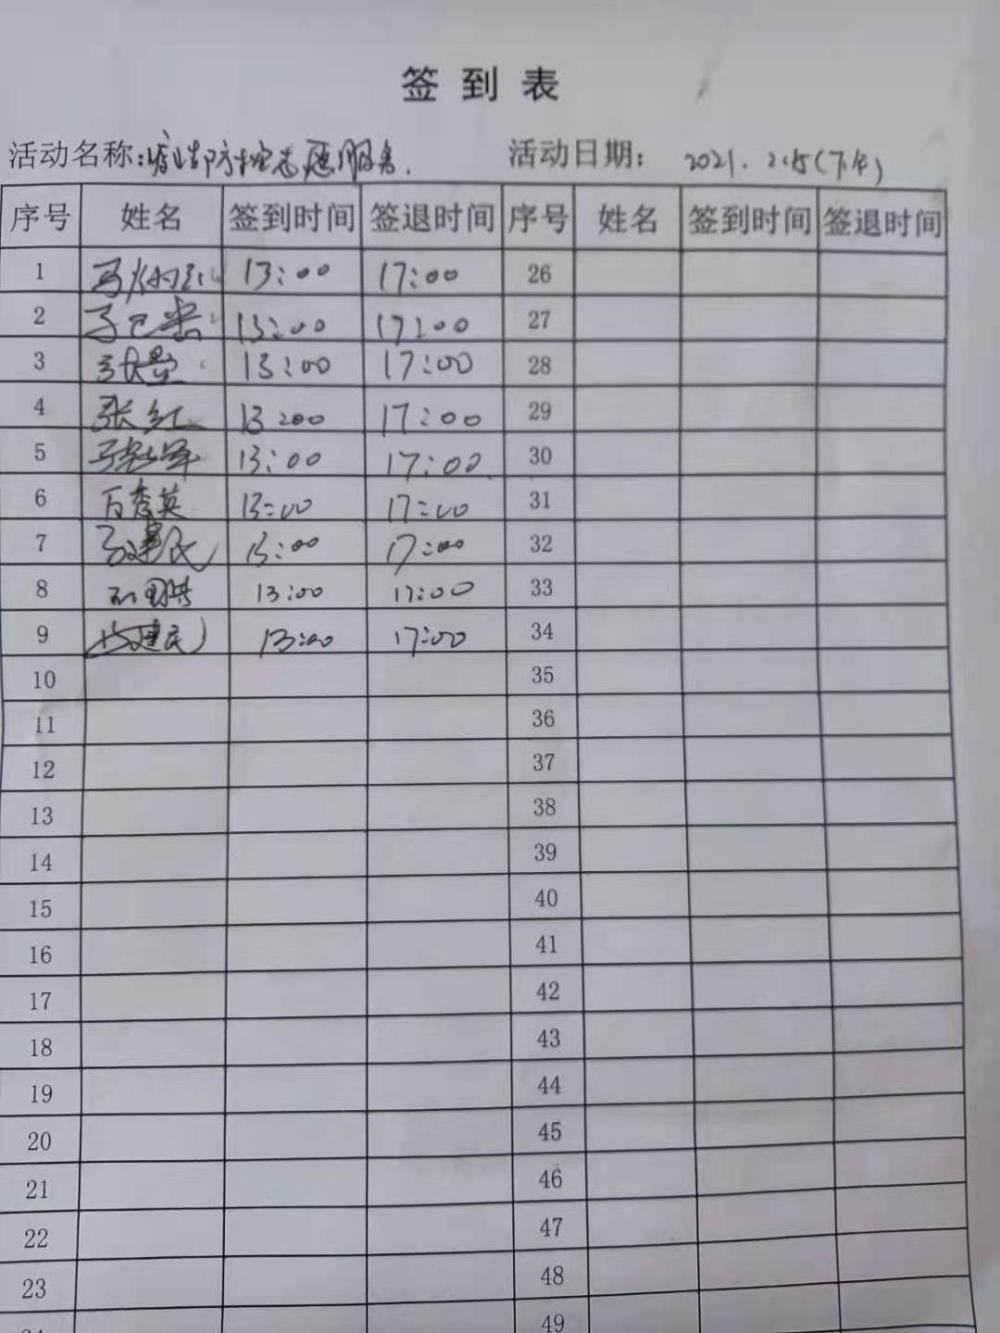 签到表
活动名称:疫情防控志愿服务. 活动日期: 2021. 2.15(下午)
序号 姓名 签到时间 签退时间 序号 姓名 签到时间 签退时间
1 13:00 17:00 26
2 13:00 17:00 27
3 13:00 17:00 28
4 张红 13:00 17:00 29
5 13:00 17:00 30
6 百秀英 13:00 17:00 31
7 建民 13:00 17:00 32
8 13:00 17:00 33
9 13:00 17:00 34
10 35
11 36
12 37
13 38
14 39
15 40
16 41
17 42
18 43
19 44
20 45
21 46
22 47
23 48
49